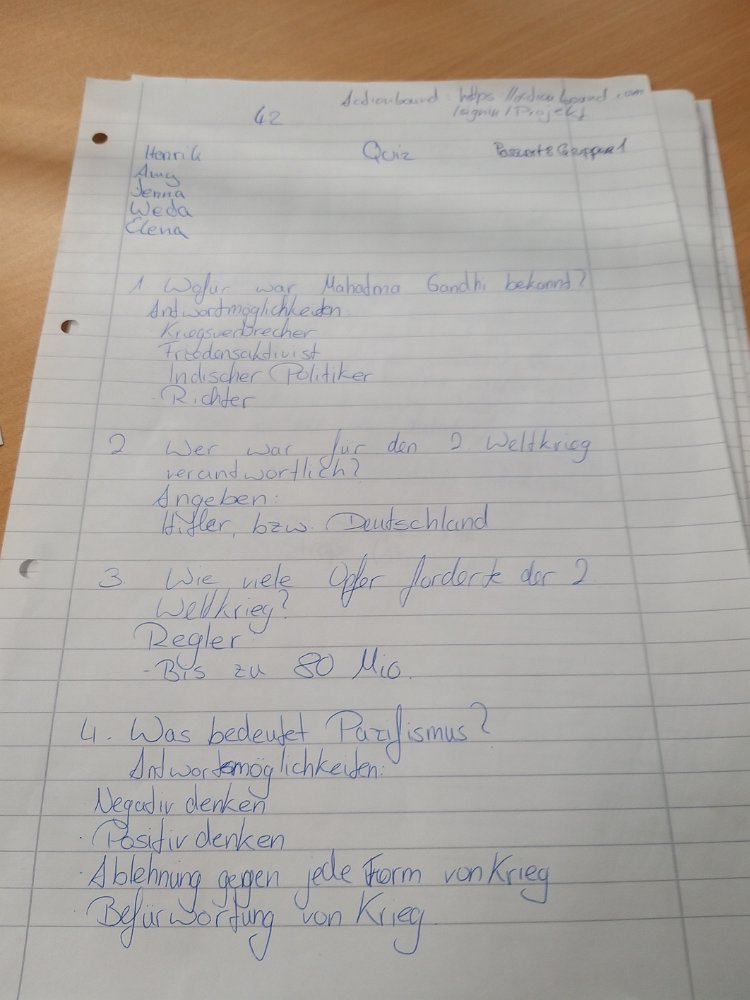 Actionbound: https://actionbound.com
/signin/Projekt
42
Henrik
Quiz
Passwort: Gruppe1
Amy
Jenna
Weda
Elena
1 Wofür war Mahadma Gandhi bekannt?
Antwortmöglichkeiten
Kriegsverbrecher
Friedensaktivist
Indischer Politiker
Richter
2 Wer war für den 2 Weltkrieg
verantwortlich?
Angeben:
Hitler, bzw. Deutschland
3 Wie viele Opfer forderte der 2
Weltkrieg?
Regler:
-Bis zu 80 Mio.
4. Was bedeutet Pazifismus?
Antwortsmöglichkeiten:
Negativ denken
· Positiv denken
· Ablehnung gegen jede Form von Krieg
· Befürwortung von Krieg